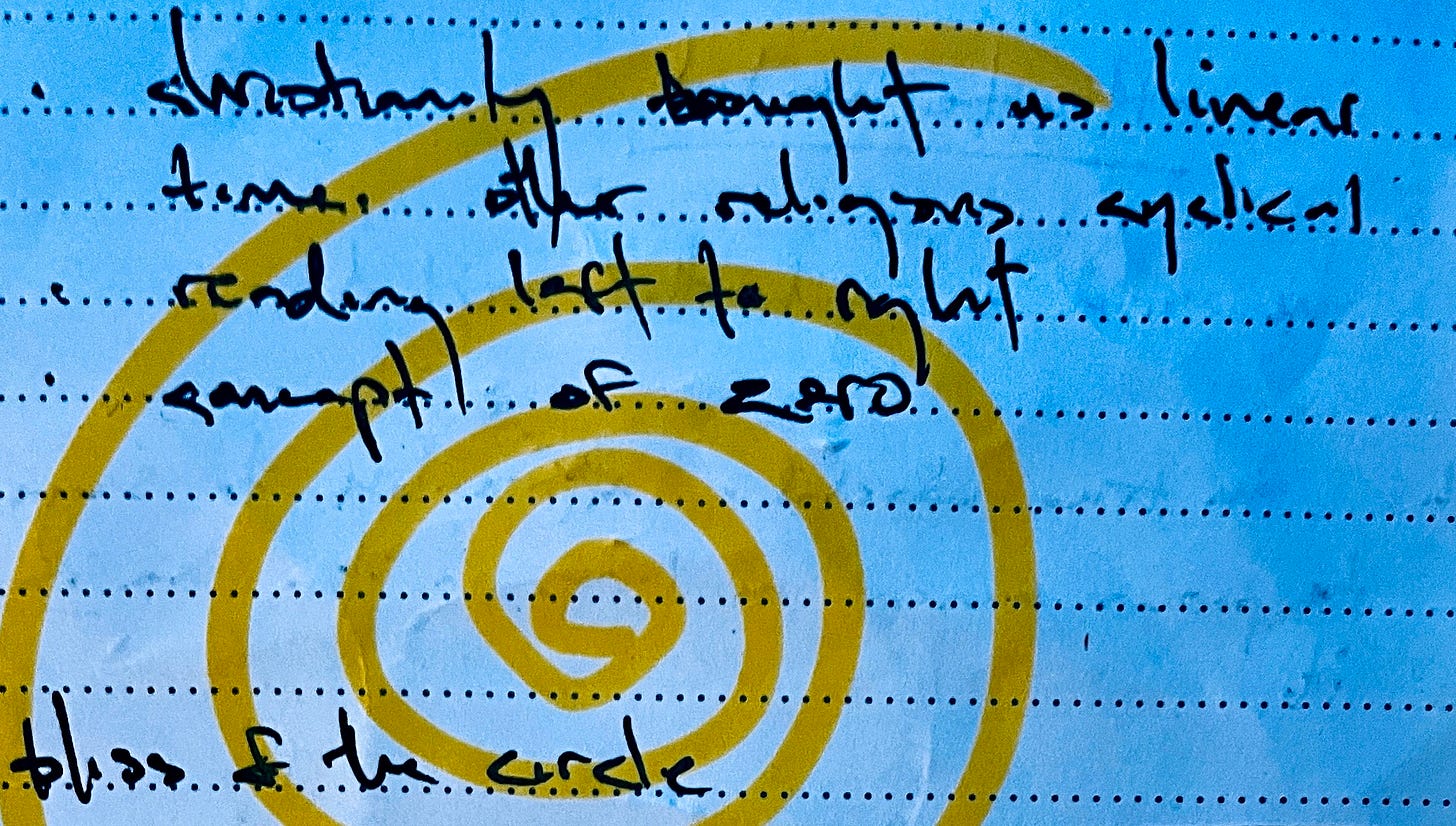 · christianity brought us linear
time. other religions cyclical
· reading left to right
· concept of zero
bliss of the circle